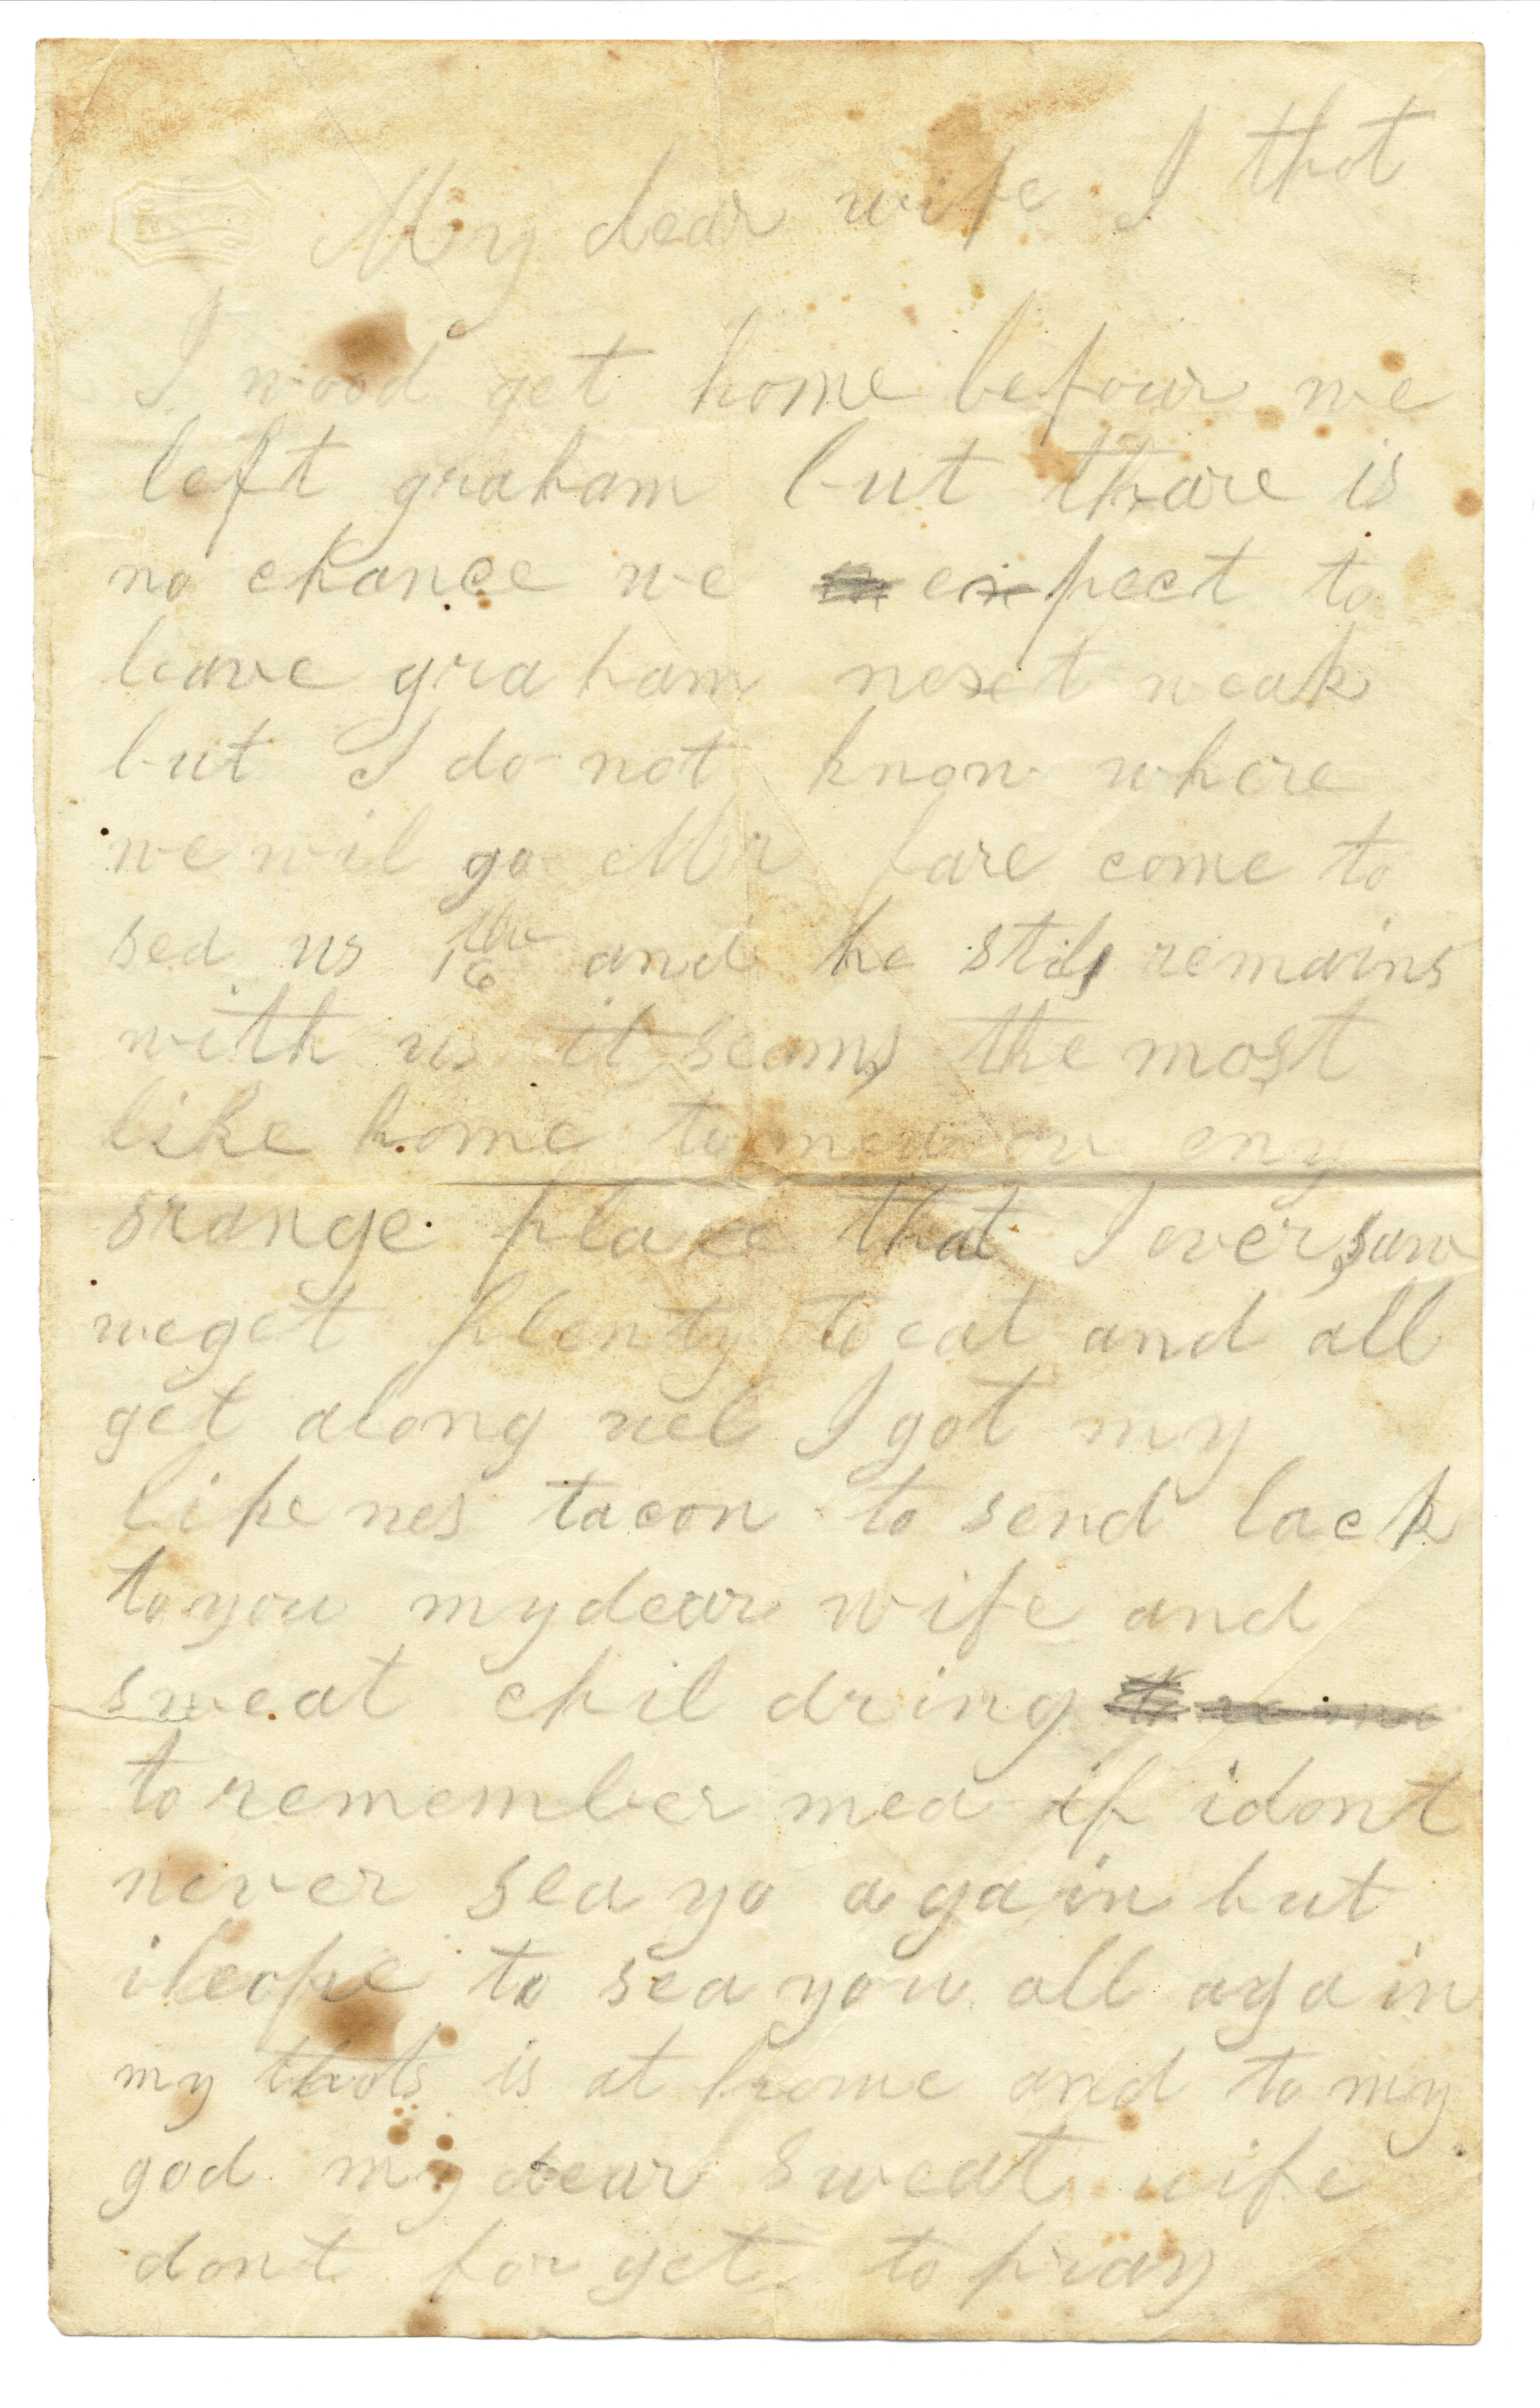 My dear wife I thot
I wood get home befour we
left graham but thare is
no chance we expect to
leave graham next weak
but I do not know where
we wil go Mr fare come to
sea us 16th and he stils remains
with us it seams the most
like home to mea ov eny
srange place that I ever saw
weget plenty to eat and all
get along wel I got my
likenes tacon to send back
to you mydear wife and
sweat childring
to remember mea if idont
never sea yo again but
iheope to sea you all again
my thots is at home and to my
god my dear sweat wife
dont forget to pray